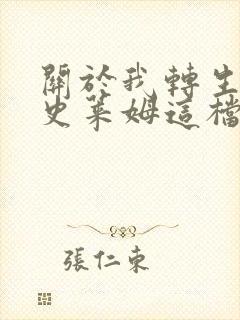 關於我轉生
史萊姆這檔
張仁東